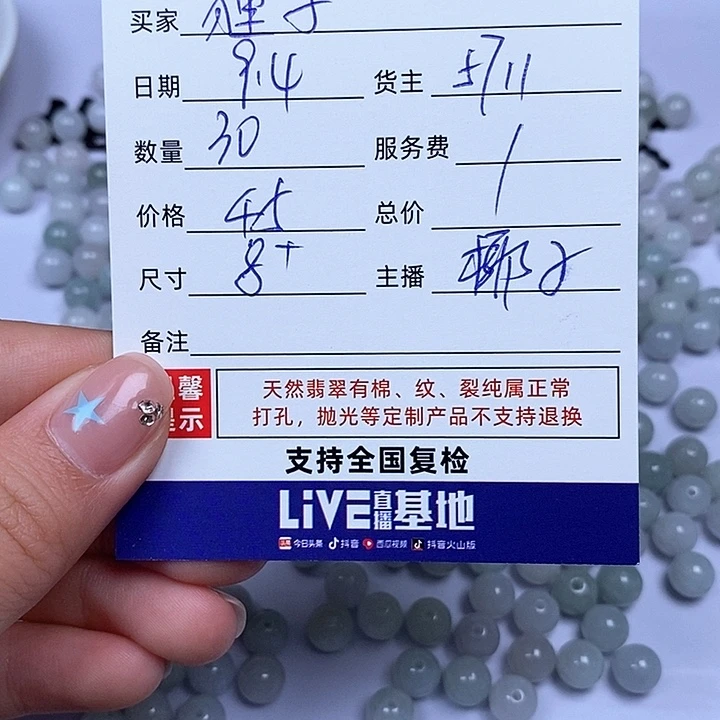 买家
日期 9.4 货主 5711
数量 30 服务费 1
价格 45 总价
尺寸 8+ 主播 椰子
备注
馨
示
天然翡翠有棉、纹、裂纯属正常
打孔，抛光等定制产品不支持退换
支持全国复检
LiVE直播基地
头条 今日头条 抖音 西瓜视频 抖音火山版